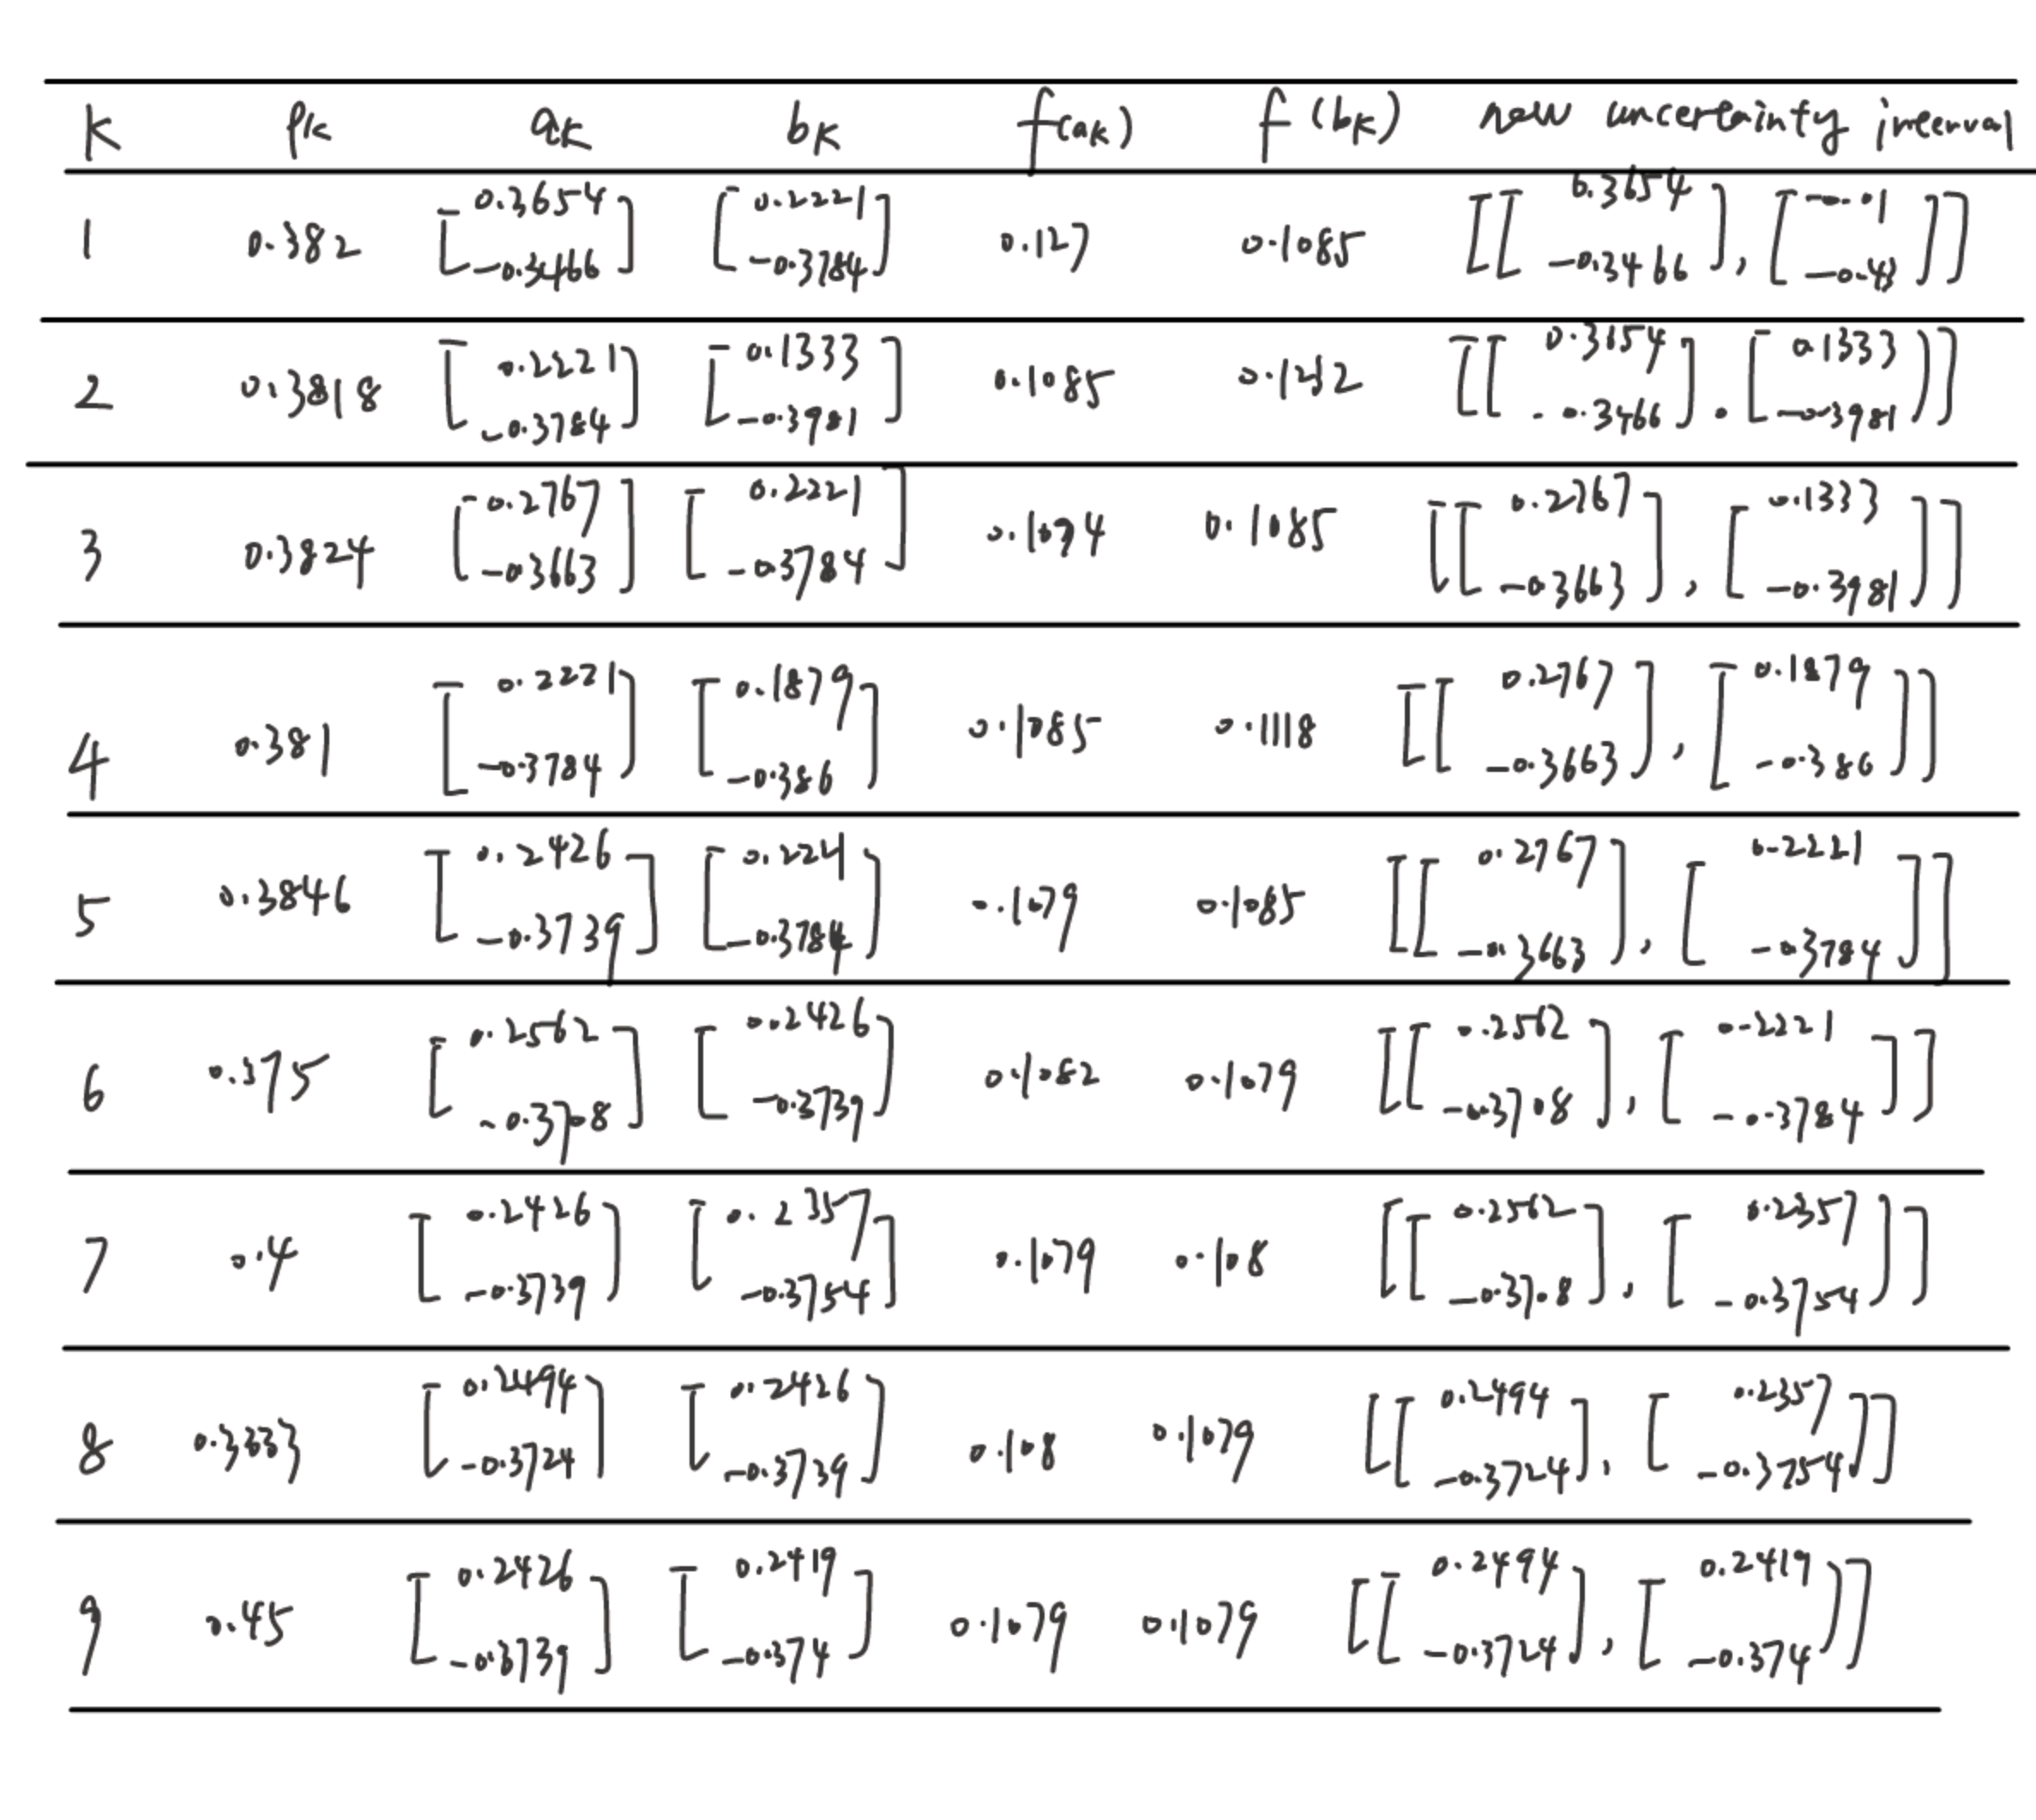 K ρk ak bk f(ak) f(bk) new uncertainty interval
1 0.382 [0.3654 -0.3466] [0.2221 -0.3784] 0.127 0.1085 [[0.3654 -0.3466], [-0.01 -0.43]]
2 0.3818 [0.2221 -0.3784] [0.1333 -0.3981] 0.1085 0.1232 [[0.3654 -0.3466], [0.1333 -0.3981]]
3 0.3824 [0.2767 -0.3663] [0.2221 -0.3784] 0.1094 0.1085 [[0.2767 -0.3663], [0.1333 -0.3981]]
4 0.381 [0.2221 -0.3784] [0.1879 -0.386] 0.1085 0.1118 [[0.2767 -0.3663], [0.1879 -0.386]]
5 0.3846 [0.2426 -0.3739] [0.2221 -0.3784] 0.1079 0.1085 [[0.2767 -0.3663], [0.2221 -0.3784]]
6 0.375 [0.2562 -0.3708] [0.2426 -0.3739] 0.1082 0.1079 [[0.2562 -0.3708], [0.2221 -0.3784]]
7 0.4 [0.2426 -0.3739] [0.2357 -0.3754] 0.1079 0.108 [[0.2562 -0.3708], [0.2357 -0.3754]]
8 0.3333 [0.2494 -0.3724] [0.2426 -0.3739] 0.108 0.1079 [[0.2494 -0.3724], [0.2357 -0.3754]]
9 0.45 [0.2426 -0.3739] [0.2419 -0.374] 0.1079 0.1079 [[0.2494 -0.3724], [0.2419 -0.374]]